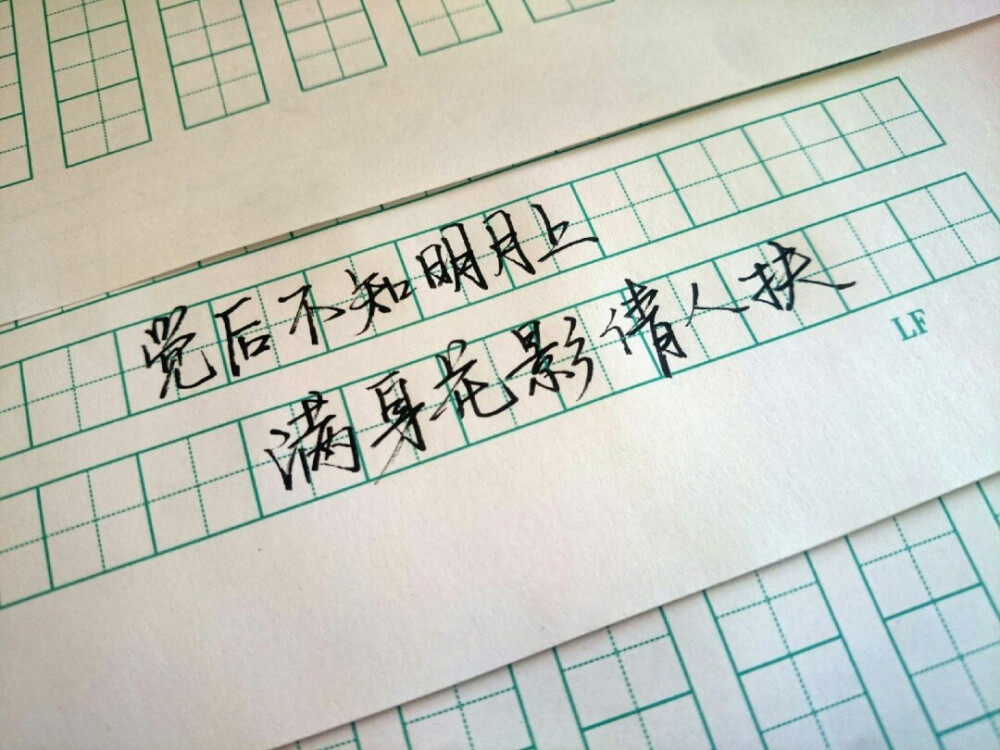 觉后不知明月上
满身花影倩人扶
LF